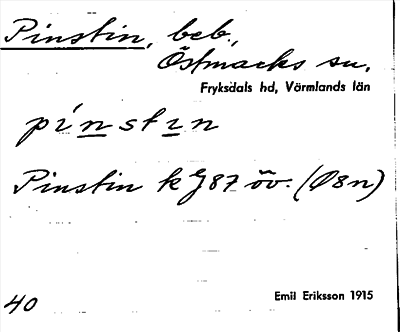 Pinstin, beb.,
Östmarks sn,
Fryksdals hd, Värmlands län
pínstin
Pinstin kg 87 öv. (Ø8n)
40
Emil Eriksson 1915